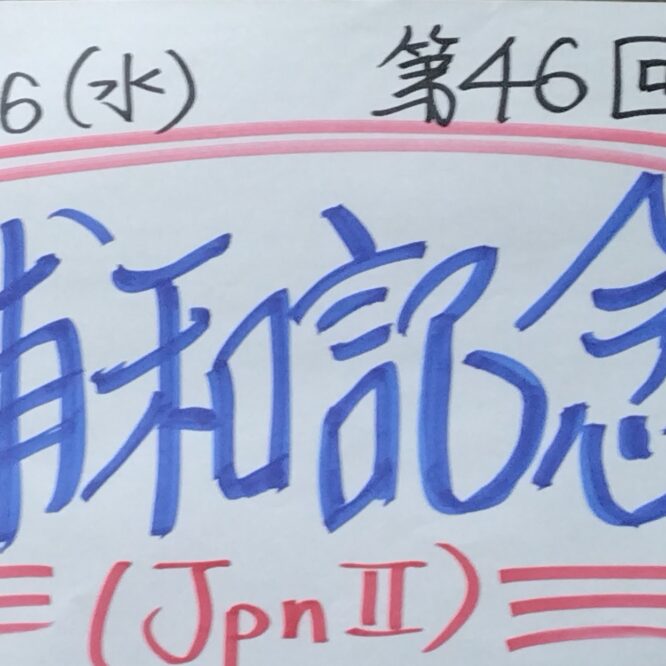 6(水) 第46回
浦和記念
(JpnII)